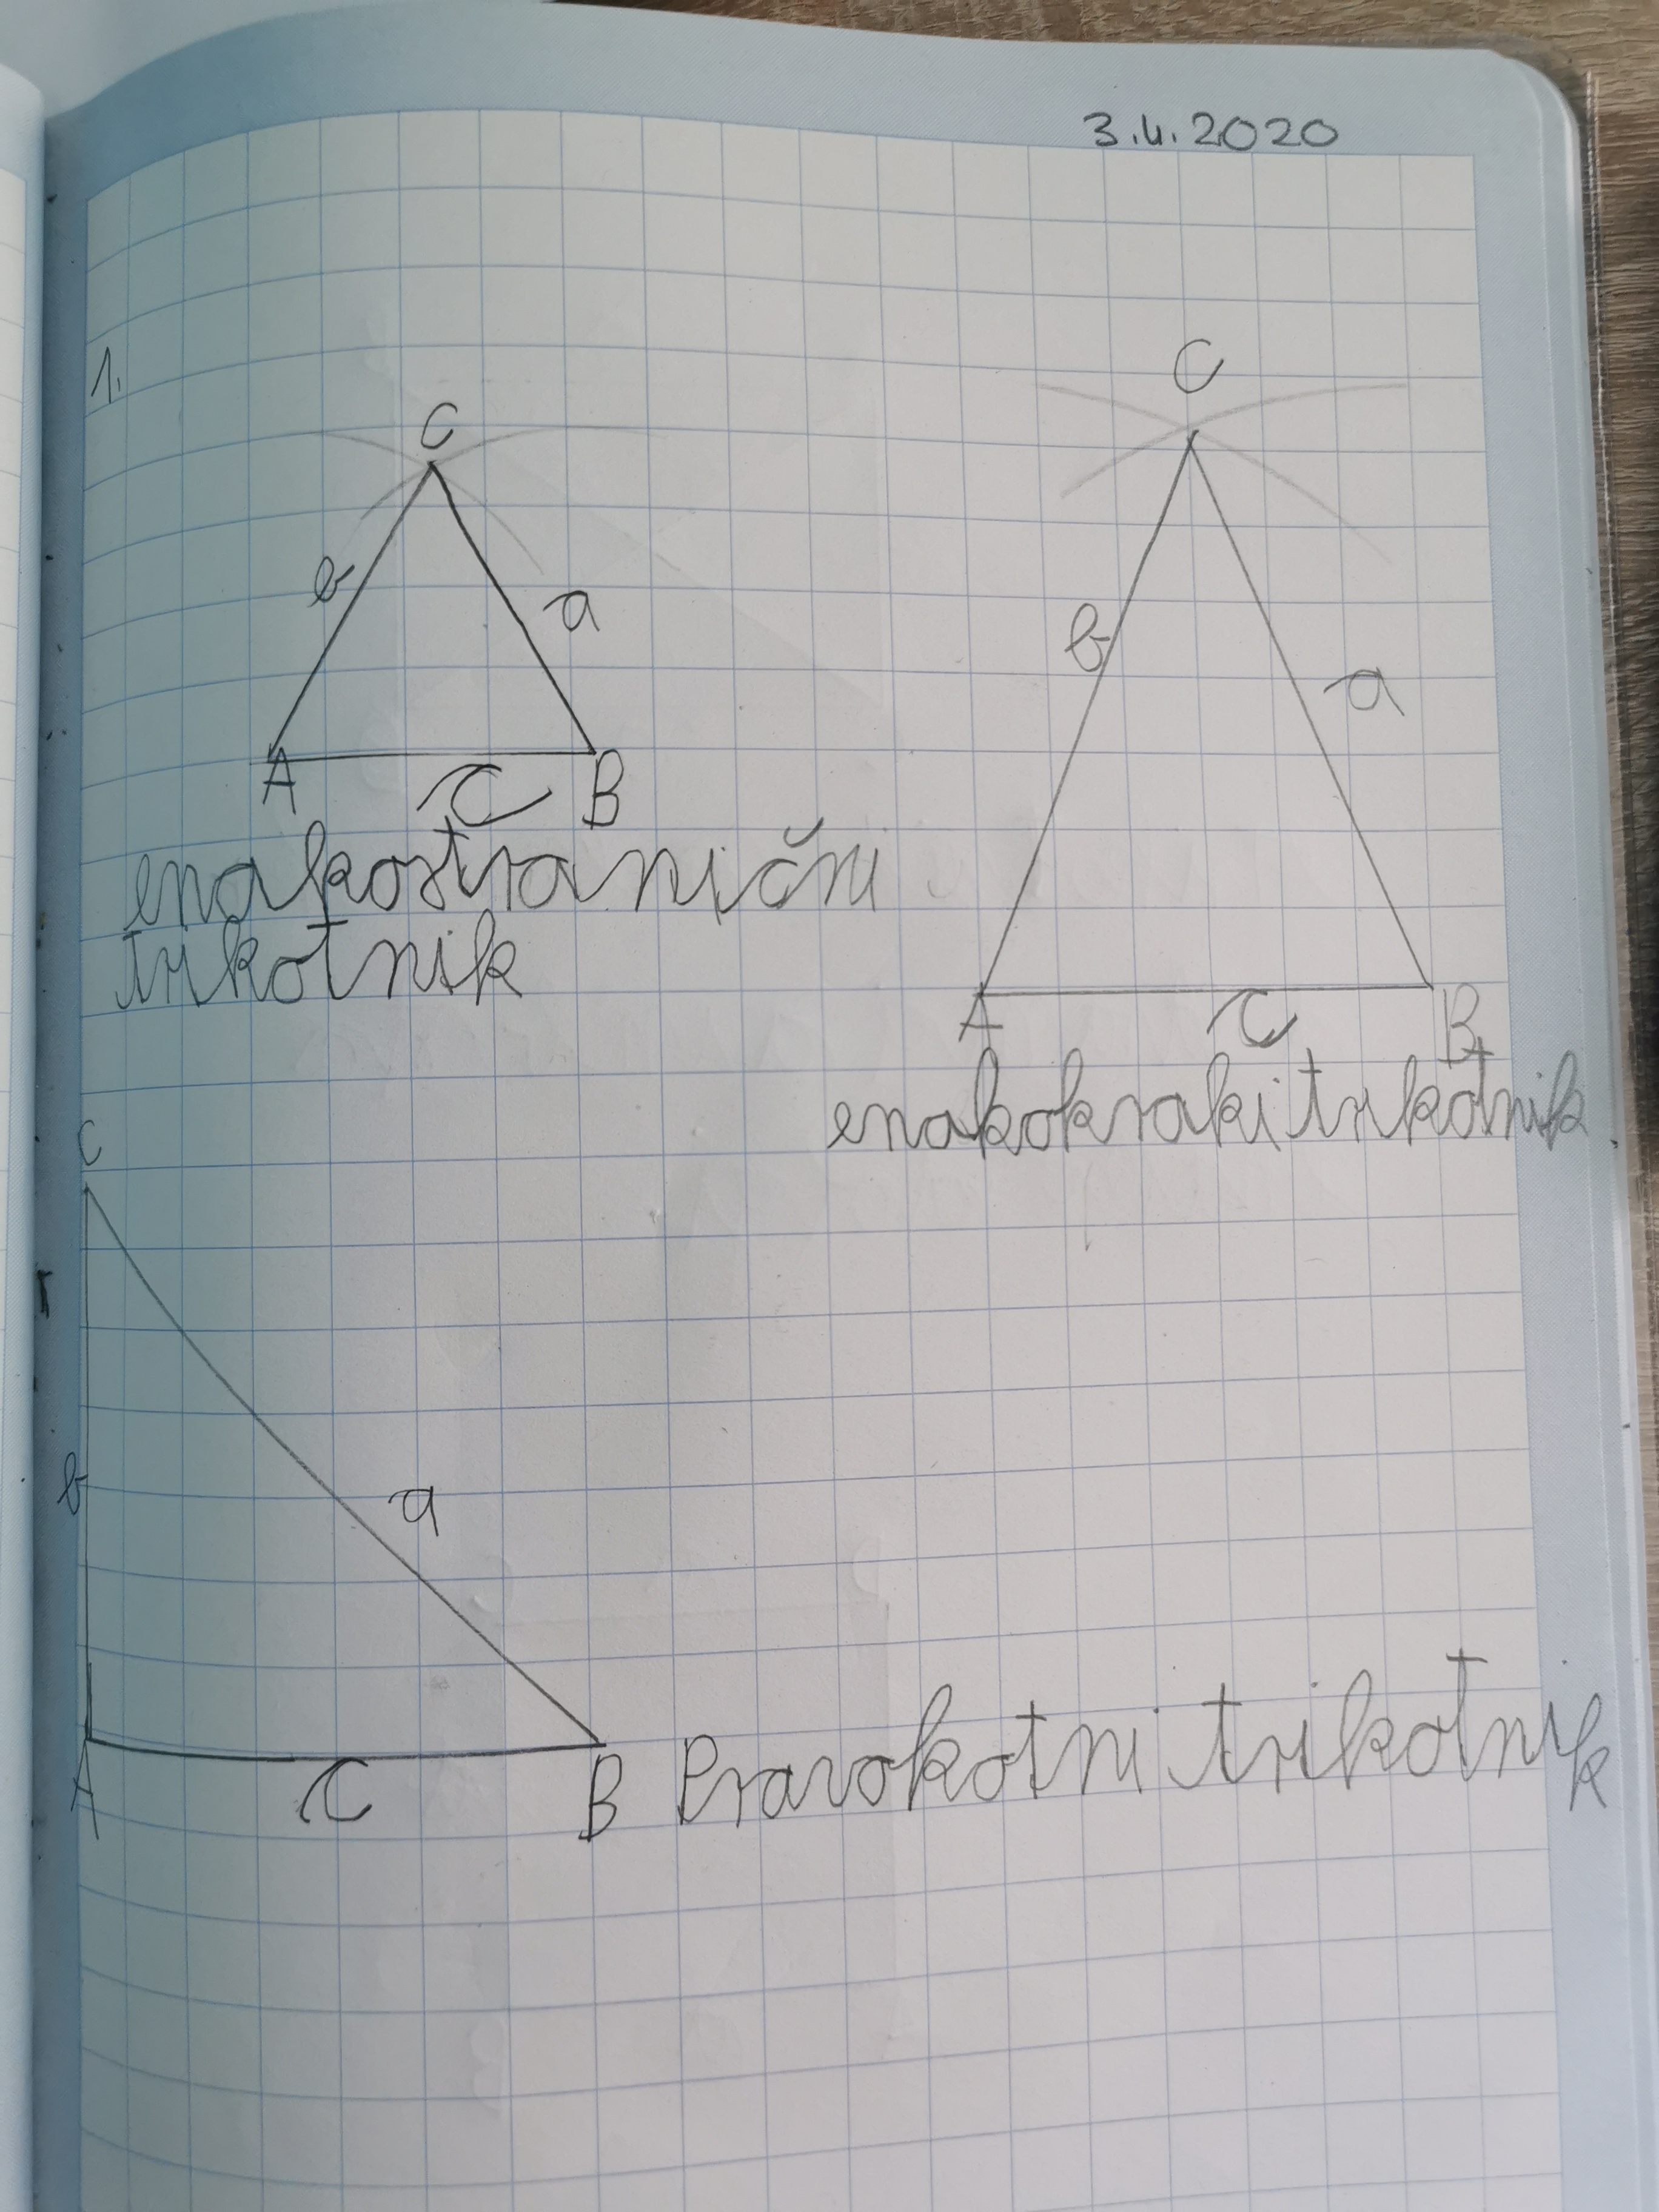 3.4.2020
1.
C
b
a
A
c
B
enakostranični
trikotnik
C
b
a
A
c
B
enakokraki trikotnik
C
b
a
A
c
B
Pravokotni trikotnik